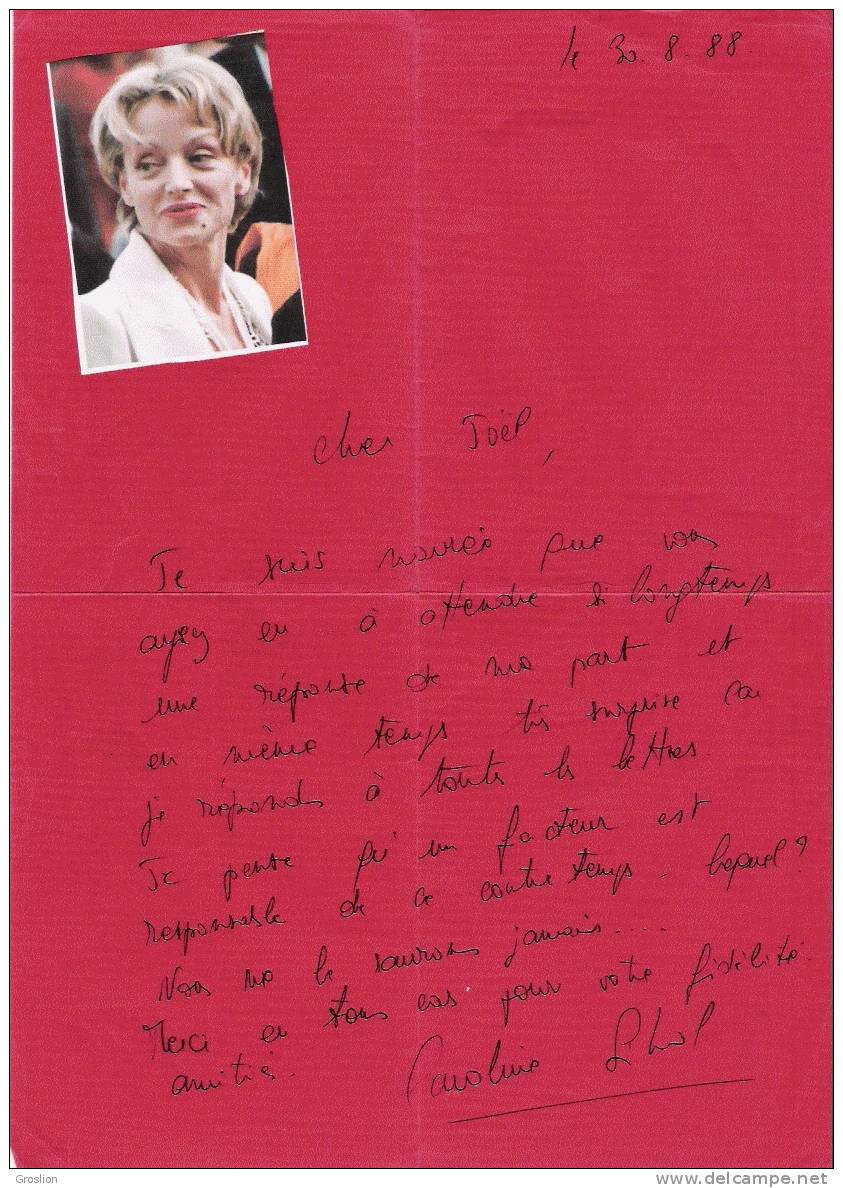 le 30.8.88.
Cher Joël,
Je suis navrée que vous
ayez eu à attendre si longtemps
une réponse de ma part et
en même temps très surprise car
je réponds à toutes les lettres.
Je pense qu'un facteur est
responsable de ce contre temps - lequel?
Nous ne le saurons jamais....
Merci en tous cas pour votre fidélité.
amitiés.
Caroline
Groslion
www.delcampe.net